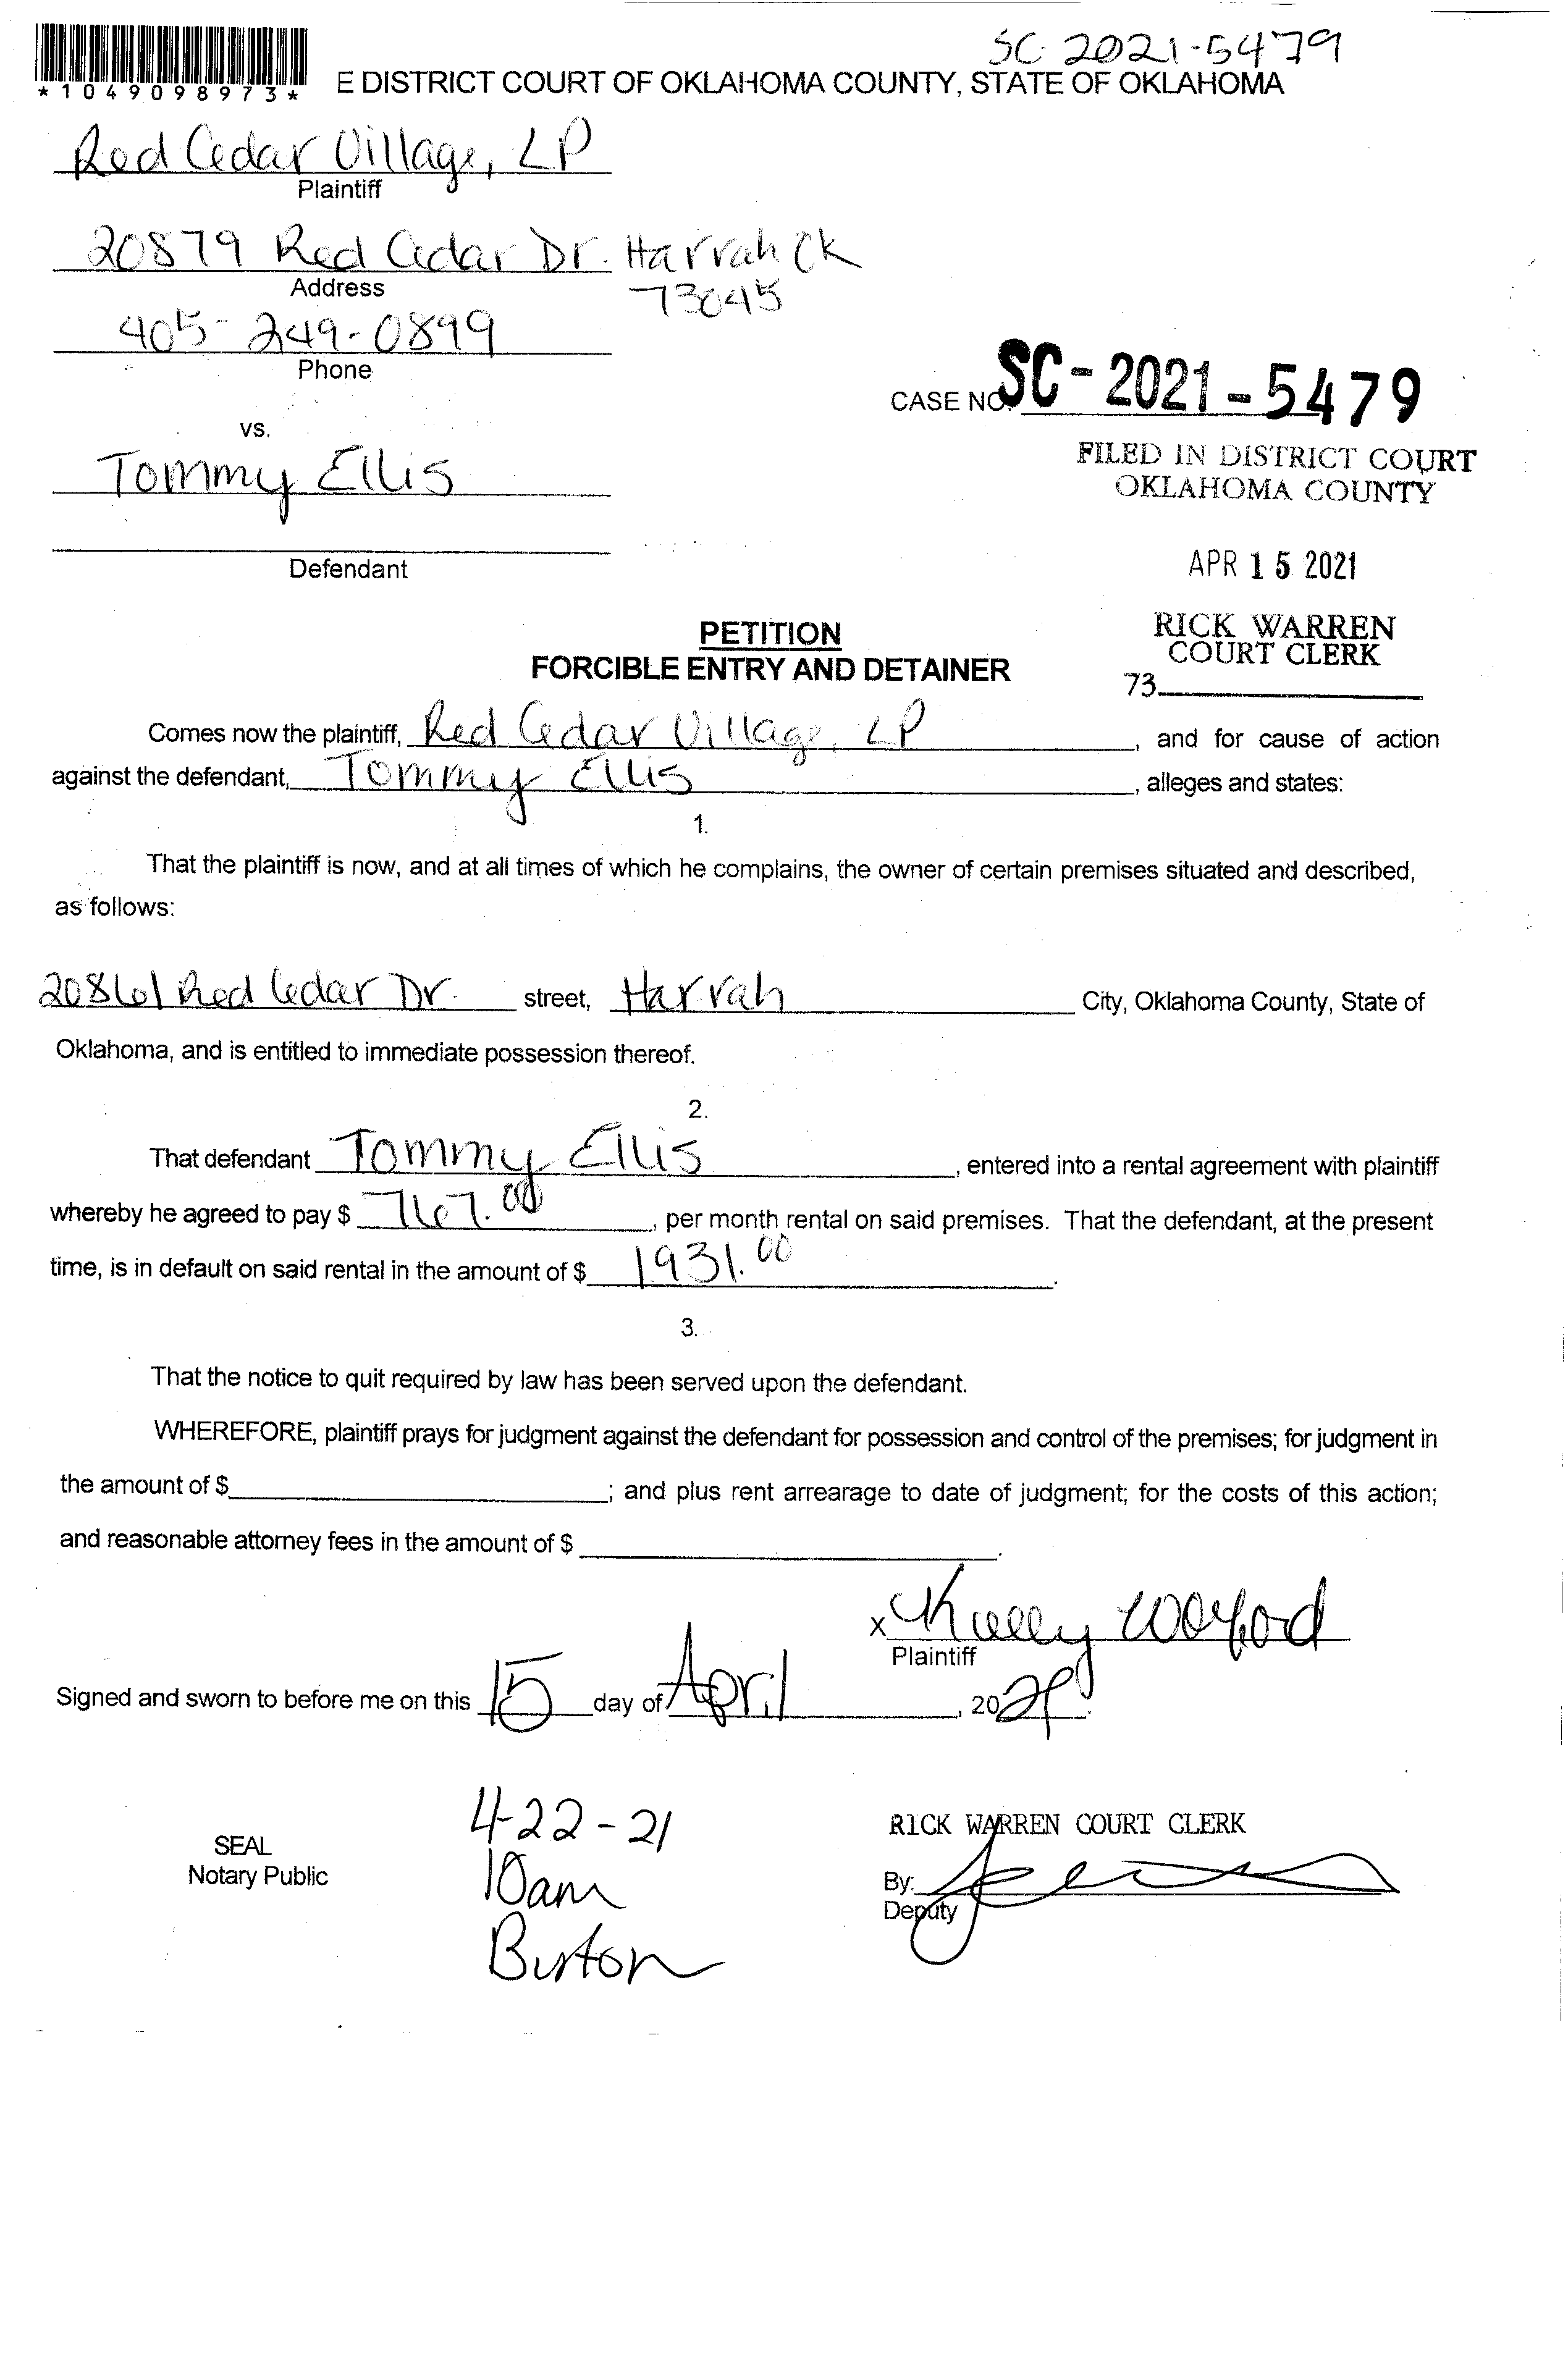 SC-2021-5479
*1049098973*
E DISTRICT COURT OF OKLAHOMA COUNTY, STATE OF OKLAHOMA
Red Cedar Village, LP
Plaintiff
20879 Red Cedar Dr. Harrah OK
Address
73045
405-249-0899
Phone
CASE NO. SC-2021-5479
vs.
FILED IN DISTRICT COURT
OKLAHOMA COUNTY
Tommy Ellis
Defendant
APR 15 2021
PETITION
FORCIBLE ENTRY AND DETAINER
RICK WARREN
COURT CLERK
73
Comes now the plaintiff, Red Cedar Village, LP, and for cause of action
against the defendant, Tommy Ellis, alleges and states:
1.
That the plaintiff is now, and at all times of which he complains, the owner of certain premises situated and described,
as follows:
20861 Red Cedar Dr. street, Harrah City, Oklahoma County, State of
Oklahoma, and is entitled to immediate possession thereof.
2.
That defendant Tommy Ellis, entered into a rental agreement with plaintiff
whereby he agreed to pay $ 767.00, per month rental on said premises. That the defendant, at the present
time, is in default on said rental in the amount of $ 1931.00.
3.
That the notice to quit required by law has been served upon the defendant.
WHEREFORE, plaintiff prays for judgment against the defendant for possession and control of the premises; for judgment in
the amount of $; and plus rent arrearage to date of judgment; for the costs of this action;
and reasonable attorney fees in the amount of $.
x
Plaintiff
Signed and sworn to before me on this 15 day of April, 2021.
4-22-21
10am
Burton
SEAL
Notary Public
RICK WARREN COURT CLERK
By:
Deputy